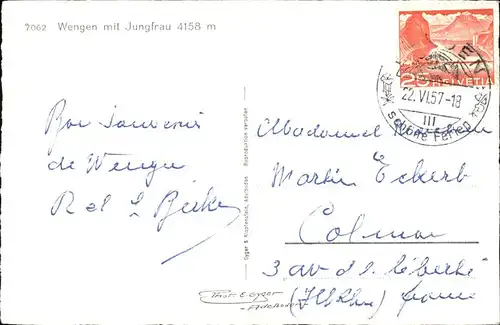 7062 Wengen mit Jungfrau 4158 m
Bon souvenir
de Wengen
Gyger & Klopfenstein, Adelboden Reproduktion verboten
Phot. E. Gyger
Adelboden
HELVETIA
WENGEN
22.VI.57-18
III
schöne Ferien
Mademoiselle
Martin Eckert
Colmar
3 av de la liberté
(Ht Rhin) France